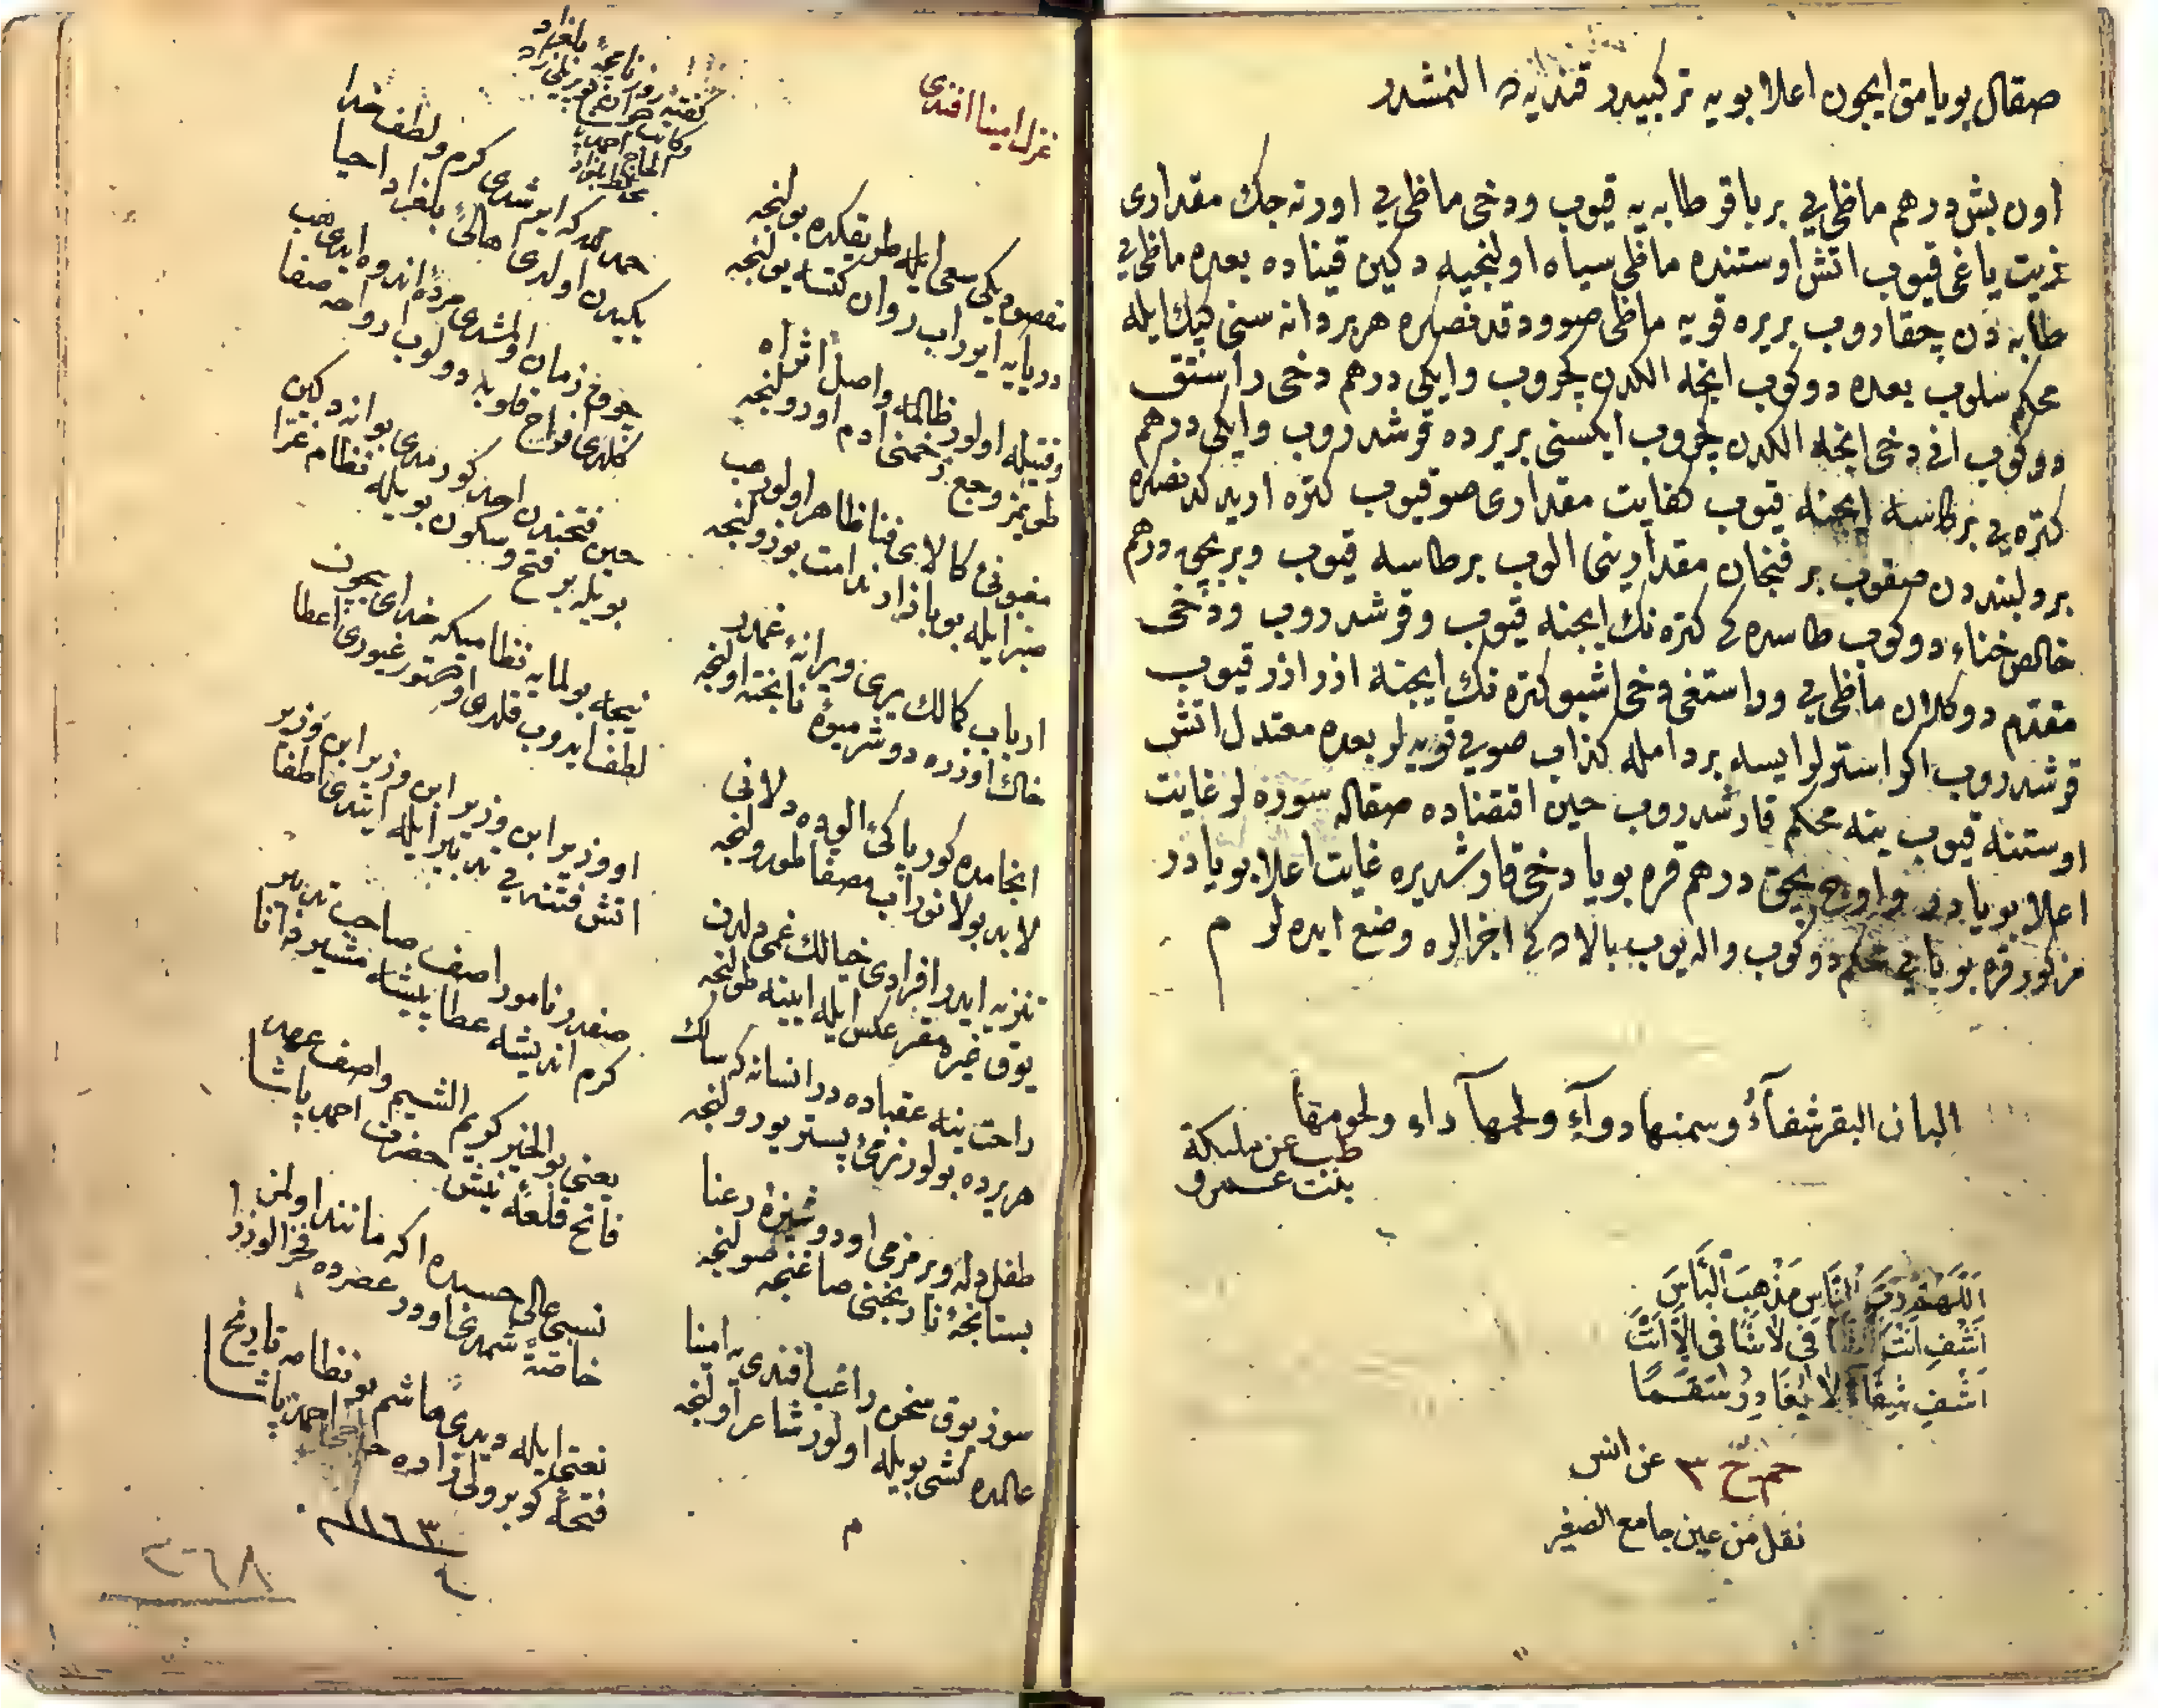 صقال بويامق ايچون اعلا بويه تركبيدر قنديه ده النمشدر
اون بش درهم ماظی یی بر باقر طابه یه قیوب ودخی ماظی یی اورته جك مقداری
زیت یاغی قیوب اتش اوستنده ماظی سیاه اولنجیه دكین قیناده بعده ماظی یی
طابه دن چقاروب بر یره قویه ماظی صوودقدنصكره هر بر دانه سنی
محكم سلوب بعده دوكوب انجه الكدن كچوروب وایكی درهم دخی راستق
دوكوب انی دخی انجه الكدن كچوروب ایكسنی بر یرده قرشدروب وایكی درهم
كتره یی بر كاسه ایچنه قیوب كفایت مقداری صو قیوب كتره اریدكدنصكره
بر دلبنددن صقوب بر فنجان مقدارینی الوب بر طاسه قیوب وبر بچق درهم
خالص خناء دوكوب طاسده كی كتره نك ایچنه قیوب وقرشدروب ودخی
مقدم دوكلان ماظی یی وراستغی دخی اشبو كتره نك ایچنه ازر ازر قیوب
قرشدروب اكر استرلر ایسه بر دامله كذاب صویی قویه لر بعده معتدل اتش
اوستنه قیوب ینه محكم قارشدروب حین اقتضاده صقاله سوره لر غایت
اعلا بویادر واوچ بچق درهم قره بویا دخی قارشدیره غایت اعلا بویادر
مزكور قره بویایی محكم دوكوب والیوب بالاده كی اجزالره وضع ایده لر م
البان البقر شفآءٌ وسمنها دوآءٌ ولحمها داء ولحومها
طب عن ملیكة
بنت عمرو
اَللّٰهُمَّ رَبَّ النَّاسِ مُذْهِبَ الْبَأْسِ
اَشْفِ اَنْتَ الشَّافِى لاَ شَافِى اِلاَّ اَنْتَ
اَشْفِ شِفَاءً لاَ يُغَادِرُ سَقَمًا
حم خ ٣ عن انس
نقل من عین جامع الصغیر
غزل امینا افندی
مقصودیكی سعی ایله طریقكده بولنجه
دریایه ایور اب روان كتسه یولنجه
وقتیله اولور ظالمه واصل اثر اه
طویمز وجع زخمنی ادم اورولنجه
مغبونئ كالای فنا ظاهر اولور هپ
صبر ایله بو بازار ندامت بوزولنجه
ارباب كمالك یری ویرانهٔ غمدر
خاك اوزره دوشر میوهٔ نابخته اولنجه
انجامده كور پاكئ الوده دلانی
لابد بولانور اب مصفا طورولنجه
تنزیه ایدر افرادی خیالك غمی دلدن
یوق غیره مقر عكس ایله ایینه طولنجه
راحت ینه عقباده در انسانه كه سالك
هر یرده بولور نرمئ بستر یورولنجه
طفل دله ویرمزمی او دوشیزهٔ رعنا
بستانچهٔ نارنجنی صاغنجه صولنجه
سوز یوق سخن راغب افندی یه امینا
عالمده كشی بویله اولور شاعر اولنجه
م
حمد لله كه ایرشدی كرم ولطف خدا
یكیدن اولدی اهالئ بلغراد احیا
چوق زمان اولمشدی مرده اندوه ایدی هپ
كلدی افواج قلوبه دولوب ارواحه صفا
حین فتحندن احد كورمدی بو اندك كین
بویله بر فتح وسكون بویله نظام غرا
نیجه بولمایه نظامیكه خدای بیچون
لطف ایدوب قلدی او دستور غیوری اعطا
او وزیر ابن وزیر ابن وزیر ابن وزیر
اتش فتنه یی تدبیر ایله ایتدی اطفا
صفدر نامور اصف صاحب تدبیر
كرم اندیشه عطا پیشه مشیر دانا
یعنی بو الخیر كریم الشیم واصف عهد
فاتح قلعهٔ نیش حضرت احمد پاشا
نسبی عالی حسبده اكه مانند اولمز
خاصةً شمدی سخاوور عصرده فخر الوزرا
نعتی ایله دیدی هاشم بو نظامه تاریخ
فتحئ كوبرولی زاده حاجی احمد پاشا
١١٦٣
٣٦٨